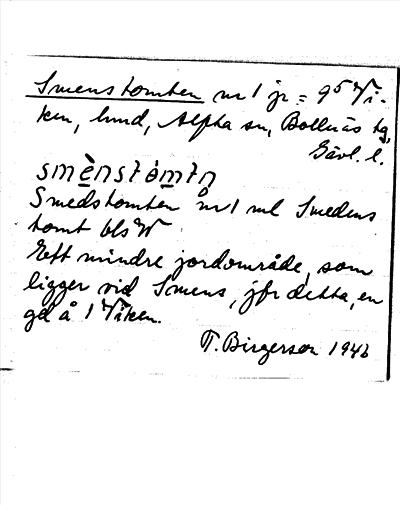 Smenstomten nr 1 jr = 9⁵ Vi-
ken, hmd, Alfta sn, Bollnäs tg,
Gävl. l.
smènstòmtn̥
Smedstomten nr 1 ml Smedens
tomt bls W
Ett mindre jordområde, som
ligger vid Smens, jfr detta, en
gd å 1 Viken.
T. Birgerson 1946